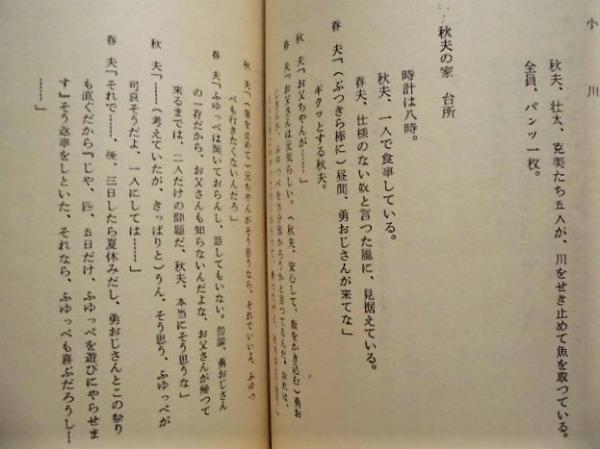 小川
秋夫、壮太、克美たち五人が、川をせき止めて魚を取つている。
全員、パンツ一枚。
秋夫の家 台所
時計は八時。
秋夫、一人で食事している。
春夫、仕様のない奴と言つた風に、見据えている。
春夫「(ぶつきら棒に)昼間、勇おじさんが来てな」
ギクッとする秋夫。
秋夫「お父ちやんが……」
春夫「お父さんは元気らしい。(秋夫、安心して、飯をかき込む)勇お
べも行きたくないんだろ」
春夫「ふゆつぺは聞いておらんし、話してもいない。勿論、勇おじさん
の一存だから、お父さんも知らないんだよな、お父さんが帰つて
来るまでは、二人だけの問題だ、秋夫、本当にそう思うな」
秋夫「……(考えていたが、きつぱりと)うん、そう思う、ふゆつぺが
可哀そうだよ、一人にしては……」
春夫「それで……、後、三日したら夏休みだし、勇おじさんとこの祭り
も直ぐだから『じや、四、五日だけ、ふゆつぺを遊びにやらせま
す』そう返事をしといた、それなら、ふゆつぺも喜ぶだろうし……
……」